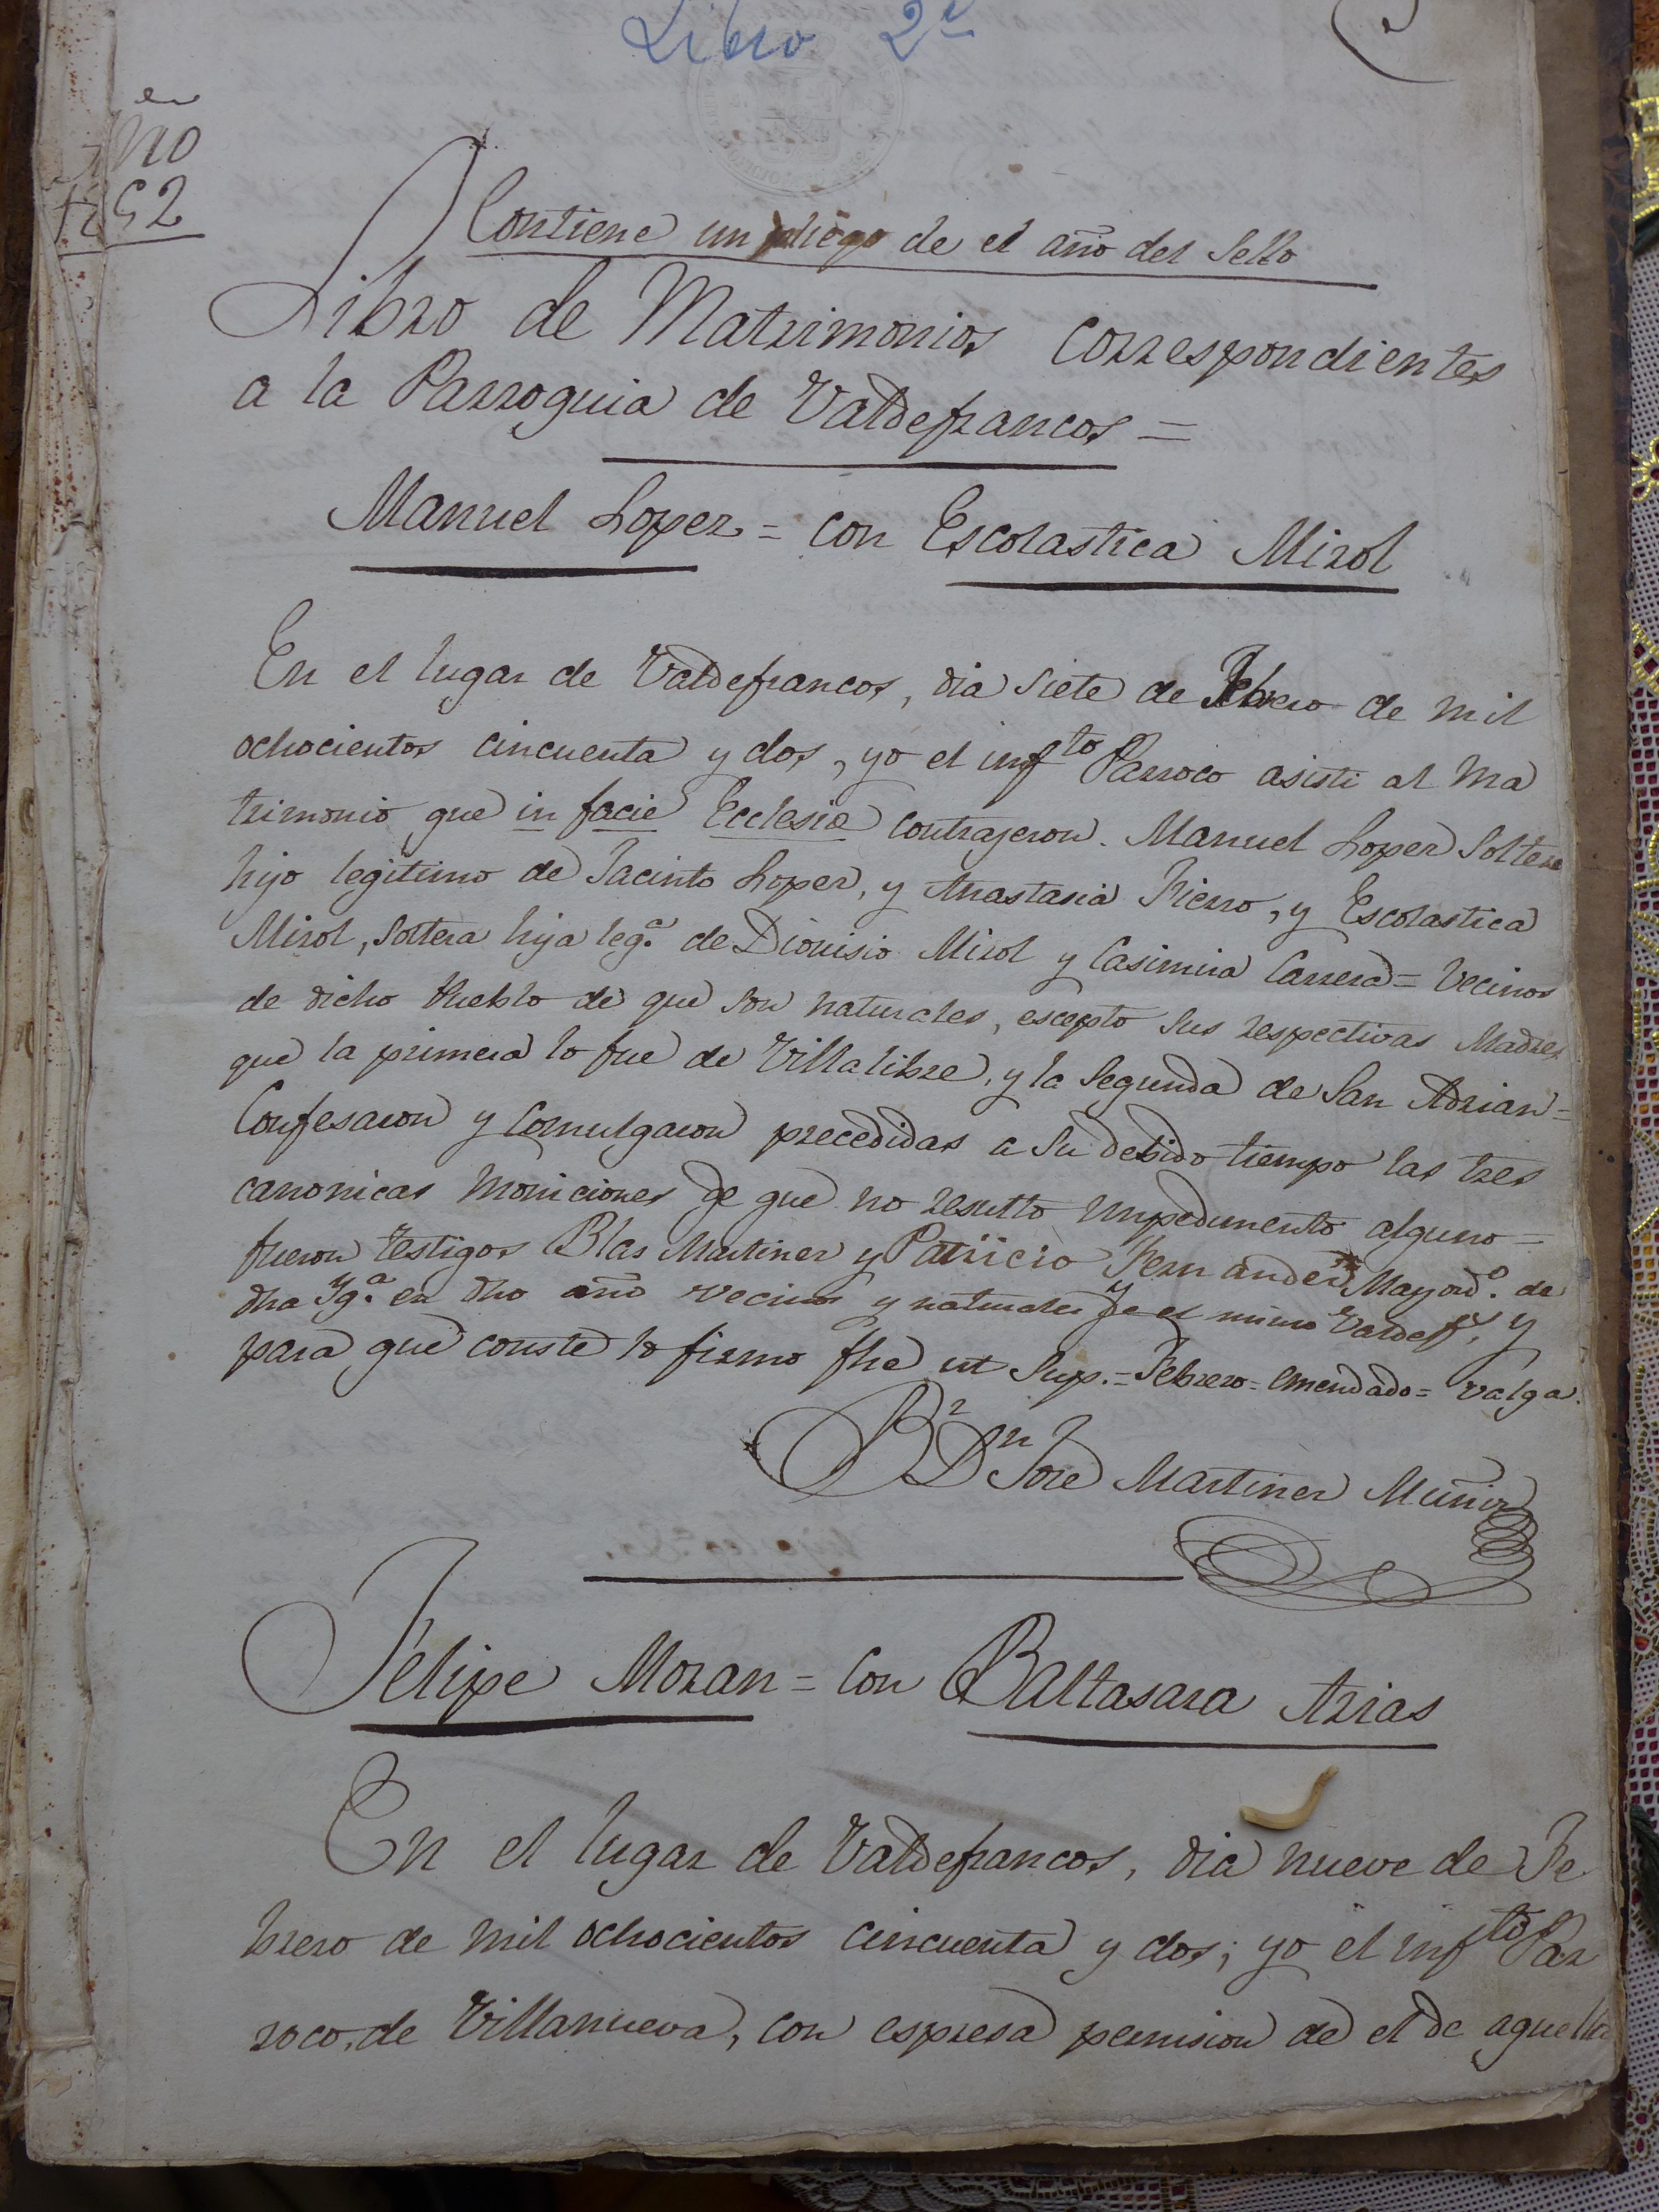 Libro 2º
en
no
52
Contiene un pliego de el año del Sello
Libro de Matrimonios correspondientes
a la Parroquia de Valdefrancos =
Manuel Lopez = con Escolastica Mirol
En el lugar de Valdefrancos, dia siete de Febrero de mil
ochocientos cincuenta y dos, yo el inf.to Parroco asisti al ma
trimonio que in facie Ecclesie contrajeron. Manuel Lopez Soltero
hijo legitimo de Jacinto Lopez, y Anastasia Fierro, y Escolastica
Mirol, Soltera hija leg.a de Dionisio Mirol y Casimira Carrera = Vecinos
de dicho Pueblo de que son naturales, escepto sus respectivas Madres
que la primera lo fue de Villalibre, y la Segunda de San Adrian =
Confesaron y Comulgaron precedidas a su debido tiempo las tres
canonicas moniciones de que no resulto impedimento alguno =
fueron testigos Blas Martinez y Patricio Fernandez Mayord.o de
dha Ig.a en dho año vecinos y naturales de el mismo Valdef.s, y
para que conste lo firmo fha ut Sup. = Febrero = emendado = valga.
B.r D.n Jose Martinez Muñiz
Felipe Moran = con Baltasara Arias
En el lugar de Valdefrancos, dia nueve de Fe
brero de mil ochocientos cincuenta y dos; yo el inf.to Par
roco, de Villanueva, con espresa permision de el de aquella